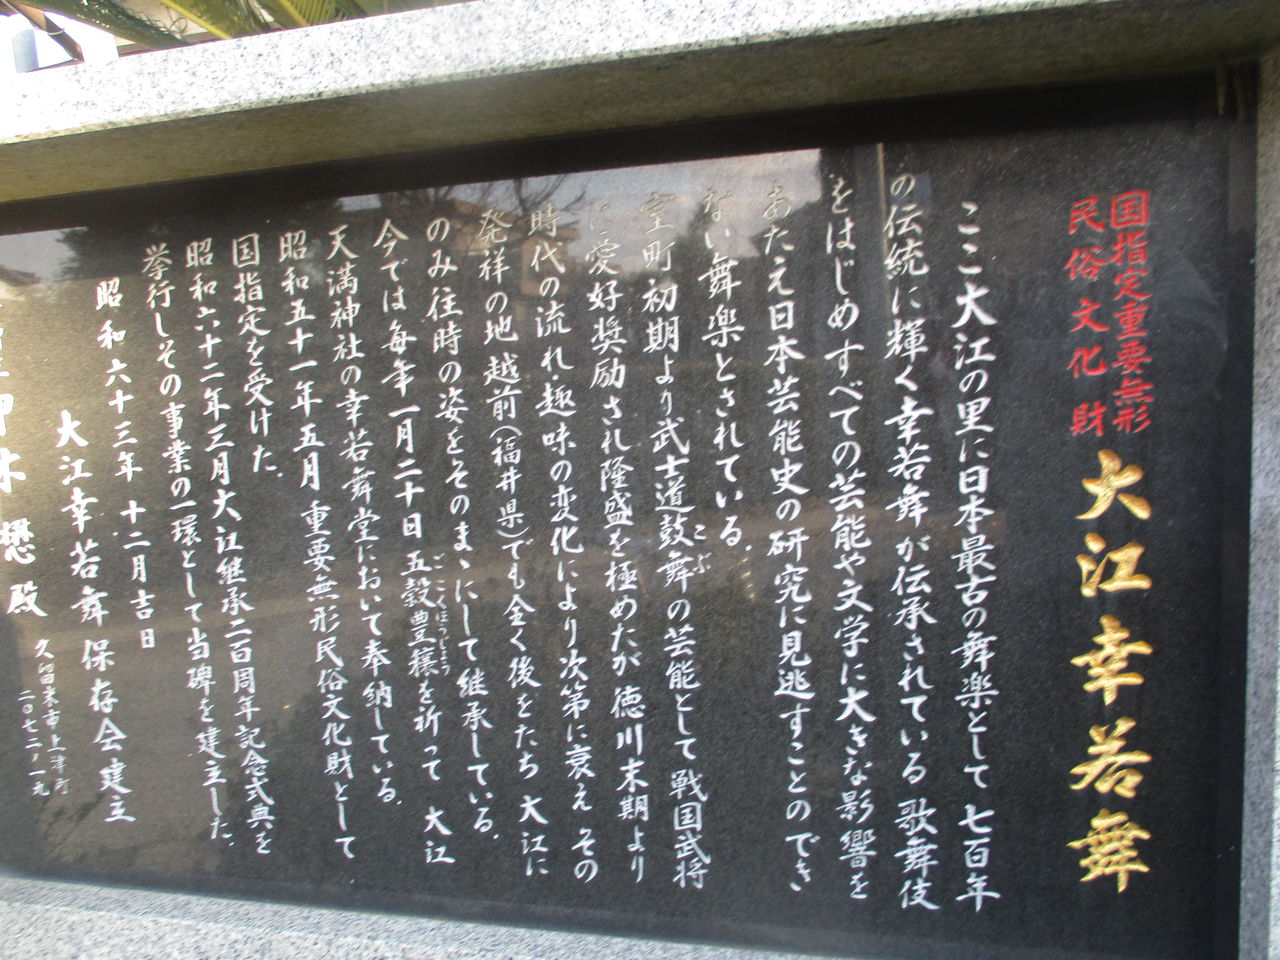 国指定重要無形
民俗文化財
大江幸若舞
ここ大江の里に日本最古の舞楽として 七百年
の伝統に輝く幸若舞が伝承されている 歌舞伎
をはじめすべての芸能や文学に大きな影響を
あたえ日本芸能史の研究に見逃すことのでき
ない舞楽とされている。
室町初期より武士道鼓舞の芸能として 戦国武将
こぶ
に愛好奨励され隆盛を極めたが徳川末期より
時代の流れ趣味の変化により次第に衰え その
発祥の地越前(福井県)でも全く後をたち 大江に
のみ往時の姿をそのまゝにして継承している。
今では毎年一月二十日 五穀豊穣を祈って 大江
ごこくほうじょう
天満神社の幸若舞堂において奉納している。
昭和五十一年五月 重要無形民俗文化財として
国指定を受けた。
昭和六十二年三月大江継承二百周年記念式典を
挙行しその事業の一環として当碑を建立した。
昭和六十三年 十二月吉日
大江幸若舞保存会建立
久留米市上津町
二〇七二ノ一九
木 懋 殿